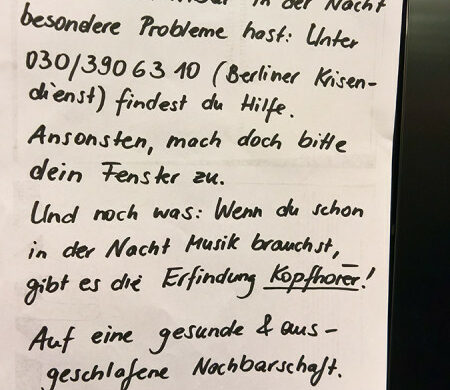 in der Nacht
besondere Probleme hast: Unter
030/390 63 10 (Berliner Krisen-
dienst) findest du Hilfe.
Ansonsten, mach doch bitte
dein Fenster zu.
Und noch was: Wenn du schon
in der Nacht Musik brauchst,
gibt es die Erfindung Kopfhörer!
Auf eine gesunde & aus-
geschlafene Nachbarschaft.